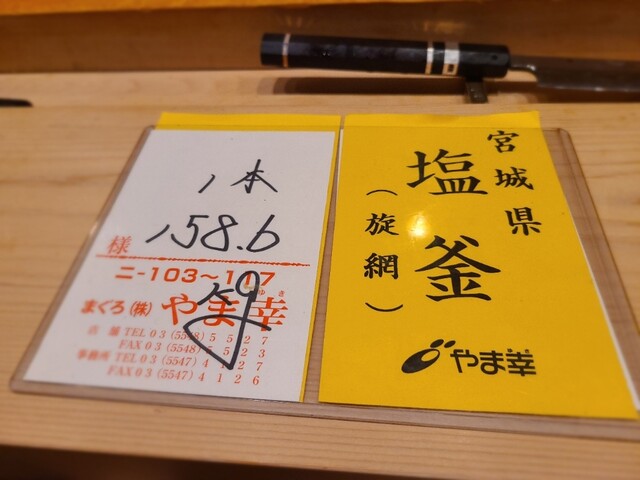 1本
158.6
様
ニ-103～117
まぐろ(株)やま幸
ゆき
店舗 TEL 03(5548)5527
FAX 03(5548)5523
事務所 TEL 03(5547)4127
FAX 03(5547)4126
宮城県
塩釜
(旋網)
やま幸